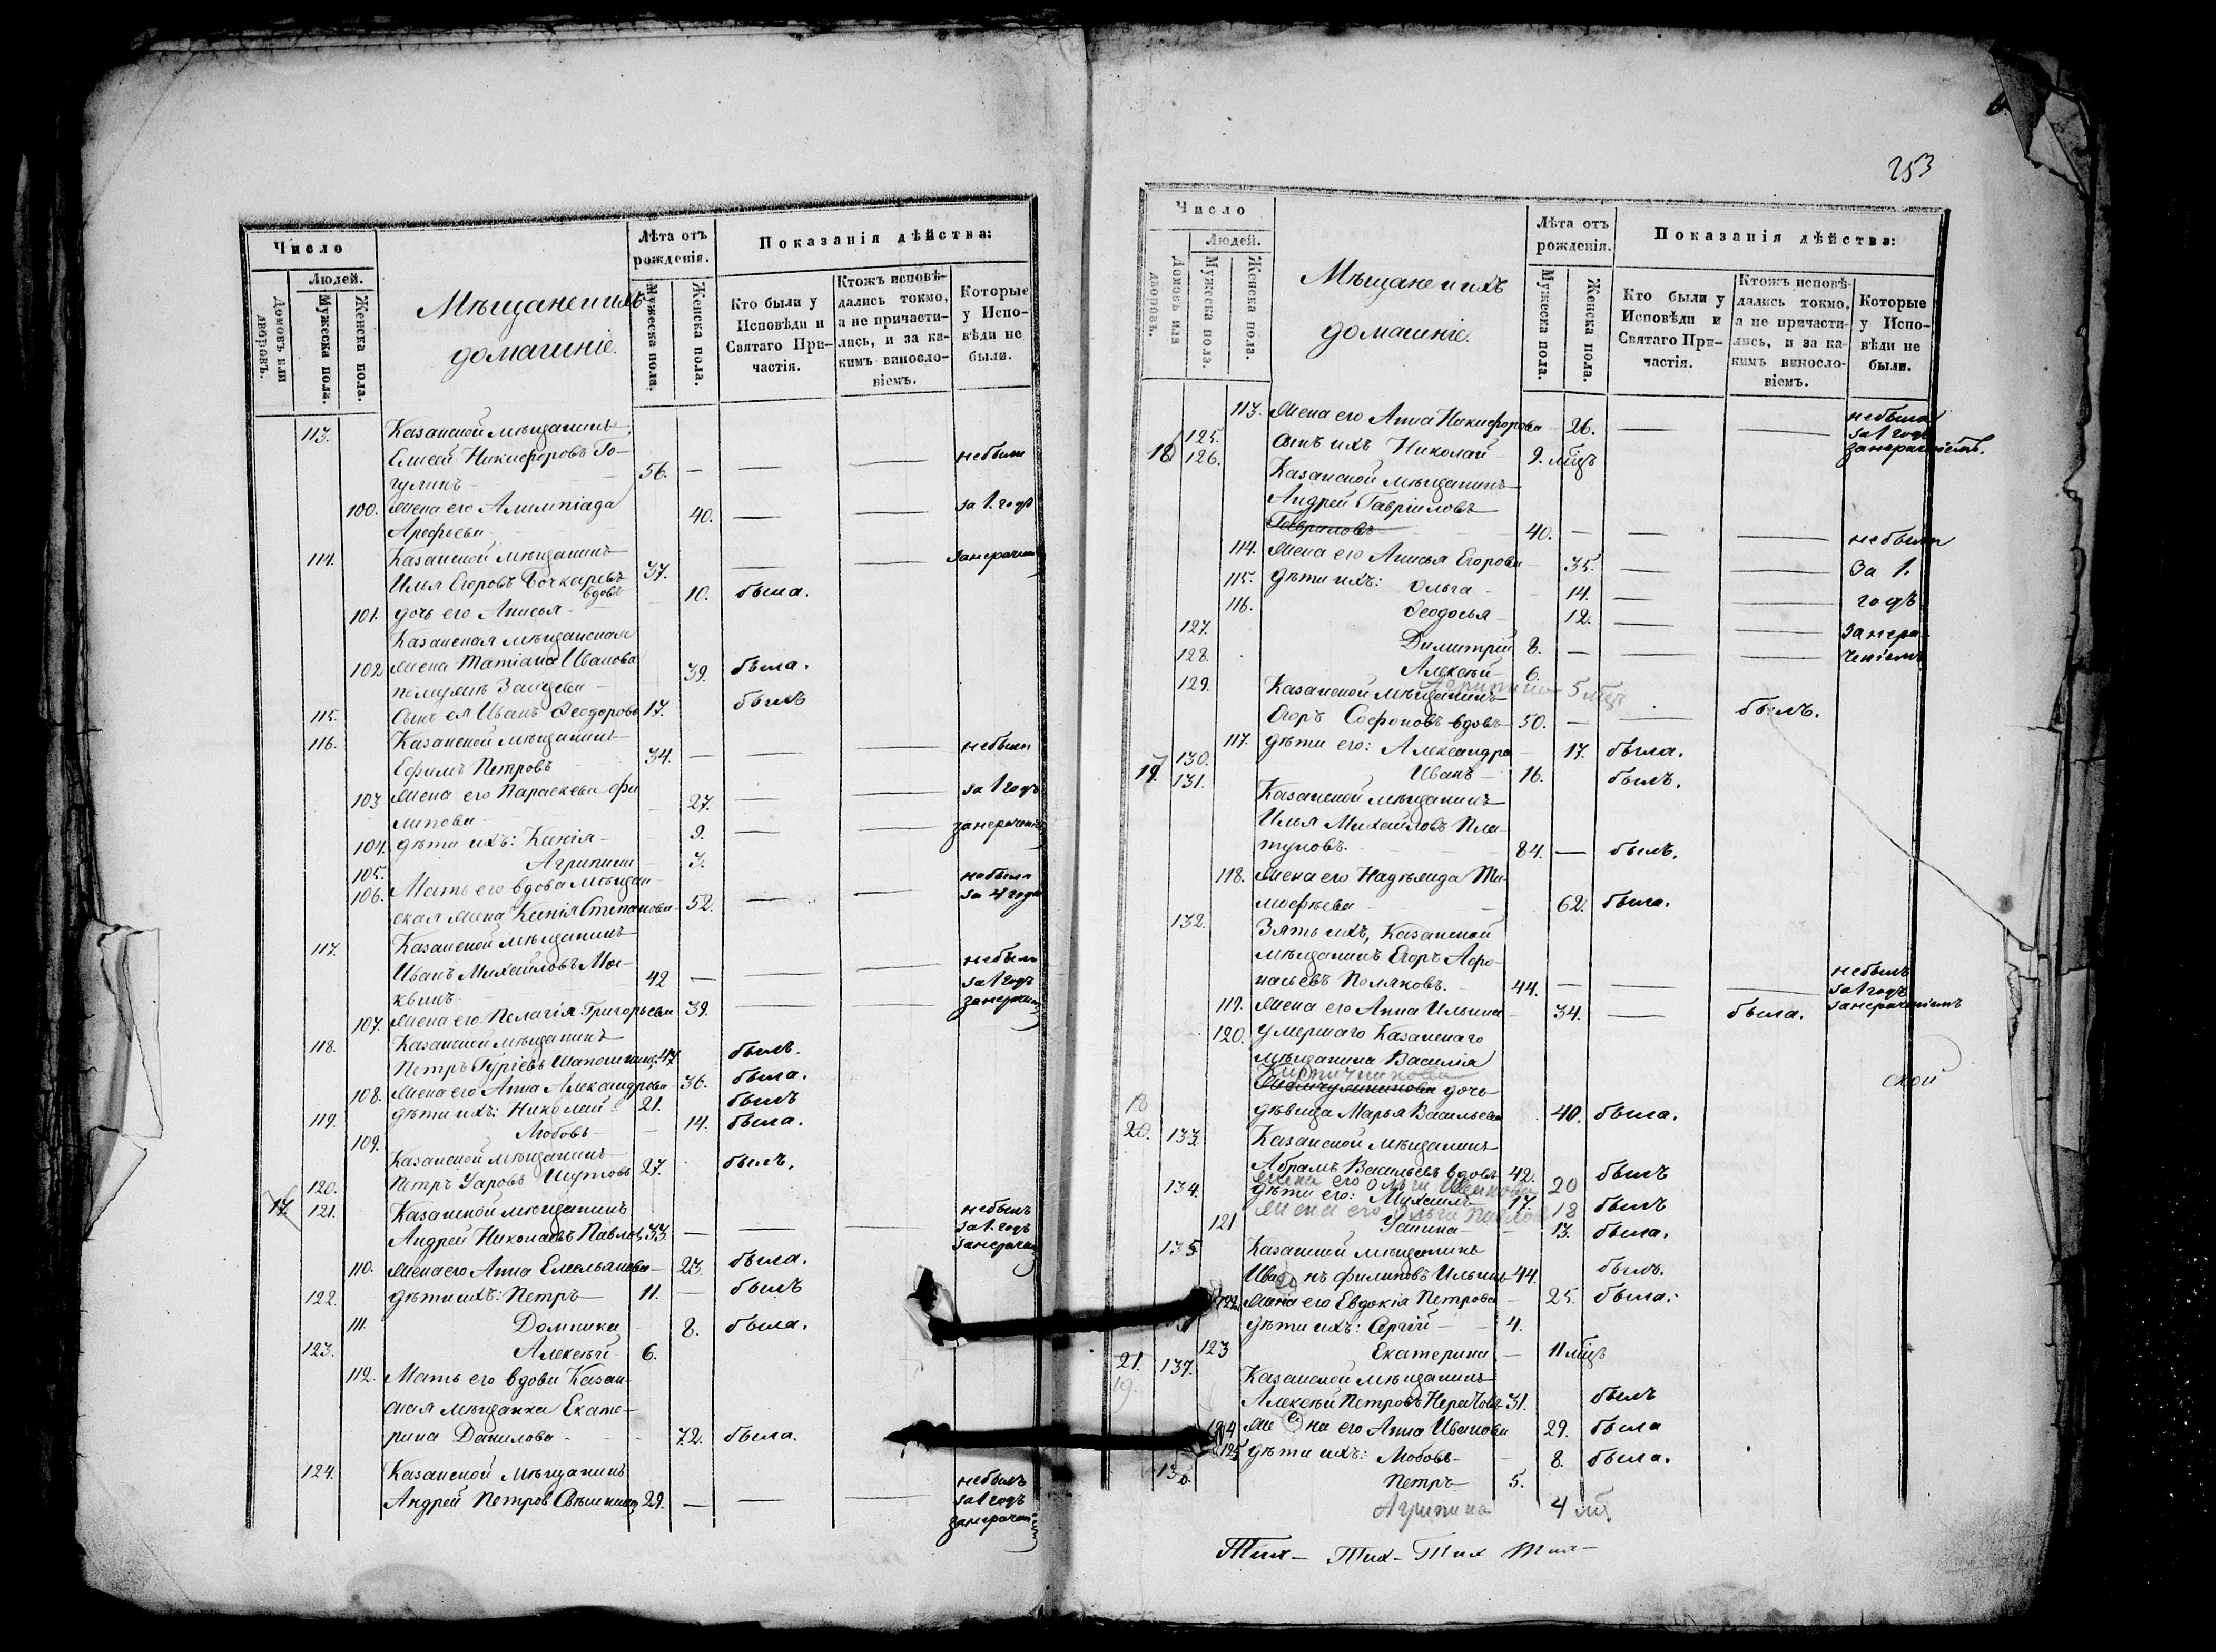 Число
Людей.
Домовъ или дворовъ.
Мужеска пола.
Женска пола.
Мѣщане и ихъ
домашніе.
Лѣта отъ
рожденія.
Мужеска пола.
Женска пола.
Показанія дѣйства:
Кто были у
Исповѣди и
Святаго При-
частія.
Ктожъ исповѣ-
дались токмо,
а не причасти-
лись, и за ка-
кимъ винosло-
віемъ.
Которые
у Испо-
вѣди не
были.
113. Казанской мѣщанинъ
Елисей Никифоровъ Го-
гулинъ 56. — — — небыли
100. Жена его Алимпіада 40. — — за 1. годъ
Арефьева
114. Казанской мѣщанинъ занерачен
Илья Егоровъ Бочкаревъ 37. — —
вдовъ
101. дочь его Анисья 10. была.
Казанская мѣщанская
102 жена Татіана Иванова 39. была.
115. Сынъ ея Иванъ Ѳеодоровъ 17. былъ
116. Казанской мѣщанинъ
Ефимъ Петровъ 34. — — — небыли
103 Жена его Параскева Фи 27. — — за 1 годъ
липова
104. дѣти ихъ: Ксенія 9. — — занерачен
105. Агрипина 3.
106. Мать его вдова мѣщан небыла
ская жена Ксенія Степанова 52. — — за 4 года
117. Казанской мѣщанинъ
Иванъ Михайловъ Мо- 42 — — — небыли
за 1 годъ
107. Жена его Пелагія Григорьева 39. — — занерачен
118. Казанской мѣщанинъ
Петръ Гурьевъ Шапошниковъ 47. былъ.
108. Жена его Анна Александрова 36. была.
119. дѣти ихъ: Николай 21. былъ
109. Любовь 14. была.
Казанской мѣщанинъ
120. Петръ Уаровъ Шутовъ 27. былъ.
17. 121. Казанской мѣщанинъ небылъ
Андрей Николаевъ Павловъ 33. — — — за 1. годъ
занерачен
110. Жена его Анна Емельянова 23. была.
122. дѣти ихъ: Петръ 11. — былъ
111. Домника 8. была.
123. Алексѣй 6.
112. Мать его вдова Казан-
ская мѣщанка Екате-
рина Данилова 72. была.
124. Казанской мѣщанинъ небылъ
Андрей Петровъ Свѣшник 29. — — — за 1 годъ
занерачен
253
Число
Людей.
Домовъ или дворовъ.
Мужеска пола.
Женска пола.
Мѣщане и ихъ
домашніе.
Лѣта отъ
рожденія.
Мужеска пола.
Женска пола.
Показанія дѣйства:
Кто были у
Исповѣди и
Святаго При-
частія.
Ктожъ исповѣ-
дались токмо,
а не причасти-
лись, и за ка-
кимъ винosло-
віемъ.
Которые
у Испо-
вѣди не
были.
113. Жена его Анна Никифорова 26. — — небыла
за 1 годъ
125. сынъ ихъ Николай 9. мѣцъ занераченіемъ.
18 126. Казанской мѣщанинъ
Андрей Гавріиловъ
Гавриловъ 40. — — — небыли
114. Жена его Анисья Егорова 35. — — За 1.
115. дѣти ихъ: Ольга 14. — — годъ
116. Ѳеодосья 12. — — занера
127. Димитрій 8. — — — ченіемъ
128. Алексѣй 6.
Агрипина 5 мѣц
129. Казанской мѣщанинъ
Егоръ Софоновъ вдовъ 50. — — былъ.
117. дѣти его: Александра 17. была.
130. Иванъ 16. былъ.
19. 131. Казанской мѣщанинъ
Илья Михайловъ Пла-
туновъ. 84. — былъ.
118. Жена его Надежда Ти-
мофѣева 62. была.
132. Зять ихъ, Казанской
мѣщанинъ Егоръ Аѳо-
насьевъ Поляковъ. 44. — — — небылъ
за 1 годъ
119. Жена его Анна Ильина 34. — была. занераченіемъ
120. Умершаго Казанскаго
мѣщанина Василія
Кирпичникова
дочь
ской
18 дѣвица Марья Васильева 40. была.
20. 133. Казанской мѣщанинъ
Абрамъ Васильевъ вдовъ 42. былъ
жена его Ольга 20
134. дѣти его: Михаилъ 17. былъ
жена его Ольга Павлова 18
121 13. была.
135 Казанской мѣщанинъ
Иванъ Филиповъ Ильинъ 44. былъ.
122 Жена его Евдокія Петрова 25. была.
дѣти ихъ: Сергій 4.
123 Екатерина 11 мѣцъ
21. 137. Казанской мѣщанинъ
19. Алексѣй Петровъ 31. былъ
124 Жена его Анна Иванова 29. была
125 дѣти ихъ: Любовь 8. была.
Петръ 5.
Агрипина 4 мц
Тих— Тих— Тих Тих—